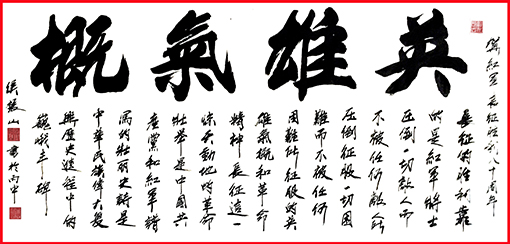 英雄氣概
紅軍長征胜利八十周年
長征的胜利靠
的是紅軍將士
压倒一切敵人而
不被任何敵人所
压倒征服一切困
難而不被任何
困難所征服的英
雄氣概和革命
精神長征這一
惊天動地的革命
壯舉是中國共
產黨和紅軍譜
寫的壯麗史詩是
中華民族偉大复
興歷史進程中的
巍峨丰碑
山書於丙申